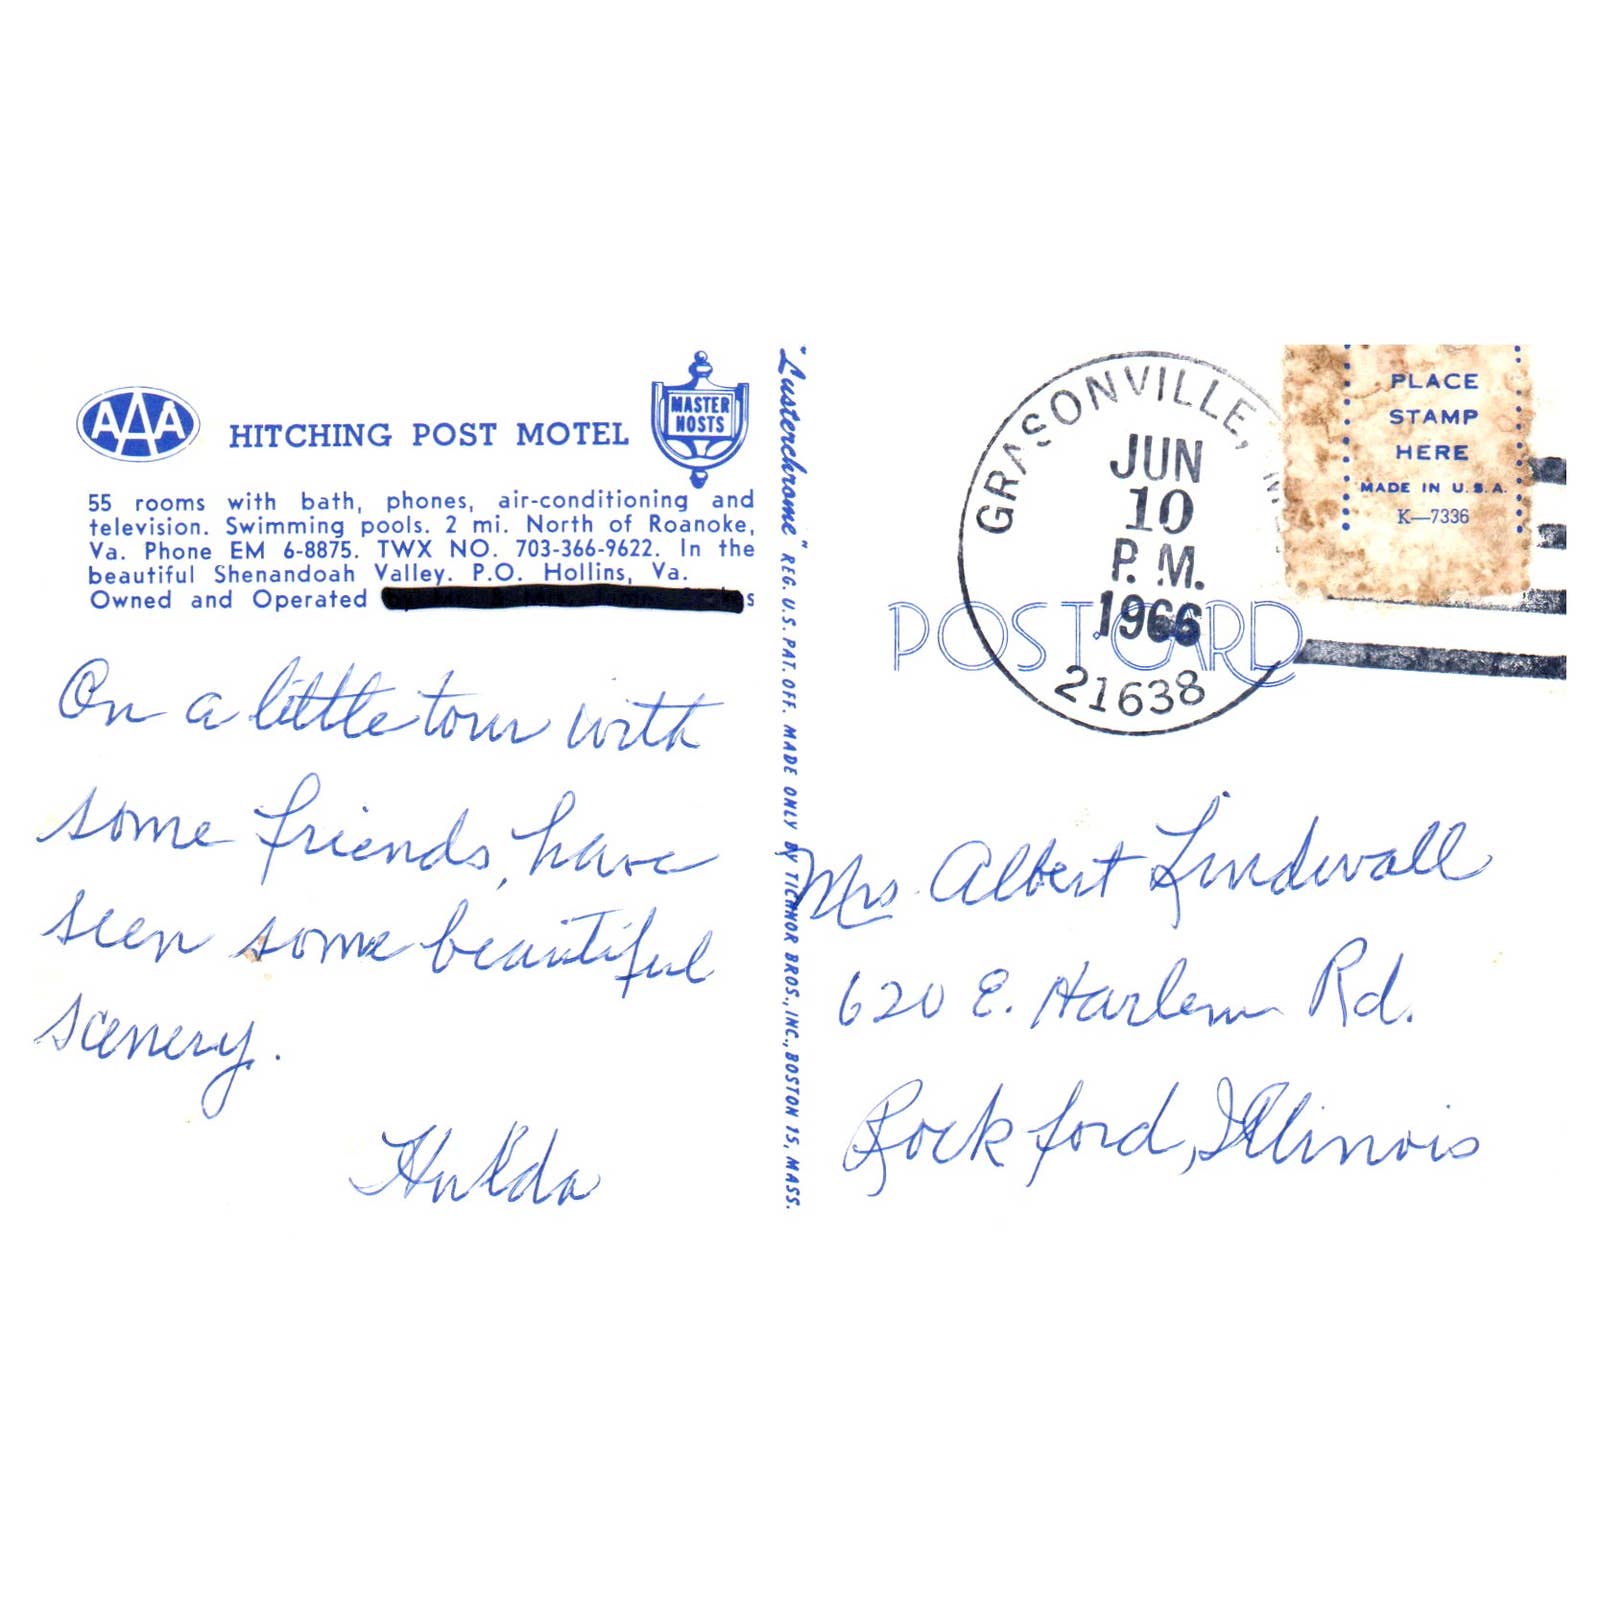 AAA
HITCHING POST MOTEL
MASTER
HOSTS
55 rooms with bath, phones, air-conditioning and
television. Swimming pools. 2 mi. North of Roanoke,
Va. Phone EM 6-8875. TWX NO. 703-366-9622. In the
beautiful Shenandoah Valley. P.O. Hollins, Va.
Owned and Operated
On a little tour with
some friends, have
seen some beautiful
scenery.
Hulda
"Lusterchrome" REG. U.S. PAT. OFF. MADE ONLY BY TICHNOR BROS., INC., BOSTON 15, MASS.
GRASONVILLE, M
JUN
10
P. M.
1966
21638
PLACE
STAMP
HERE
MADE IN U.S.A.
K—7336
POST CARD
Mrs. Albert Lindwall
620 E. Harlem Rd.
Rockford, Illinois